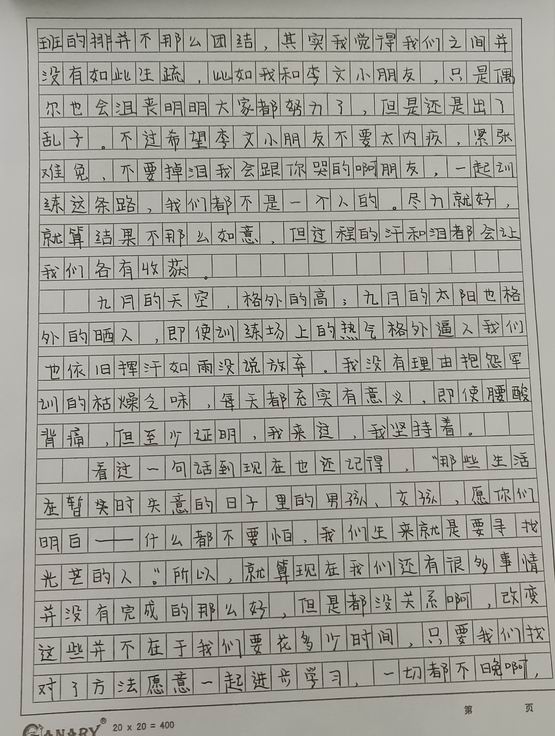 班的排并不那么团结，其实我觉得我们之间并
没有如此生疏，比如我和李文小朋友，只是偶
尔也会沮丧明明大家都努力了，但是还是出了
乱子。不过希望李文小朋友不要太内疚，紧张
难免，不要掉泪我会跟你哭的啊朋友，一起训
练这条路，我们都不是一个人的。尽力就好，
就算结果不那么如意，但过程的汗和泪都会让
我们各有收获。
九月的天空，格外的高；九月的太阳也格
外的晒人，即使训练场上的热气格外逼人我们
也依旧挥汗如雨没说放弃。我没有理由抱怨军
训的枯燥乏味，每天都充实有意义，即使腰酸
背痛，但至少证明，我来过，我坚持着。
看过一句话到现在也还记得，“那些生活
在暂失时失意的日子里的男孩、女孩，愿你们
明白——什么都不要怕，我们生来就是要寻找
光芒的人。”所以，就算现在我们还有很多事情
并没有完成的那么好，但是都没关系啊，改变
这些并不在于我们要花多少时间，只要我们找
对了方法愿意一起进步学习，一切都不晚啊，
第 页
CANARY® 20 x 20 = 400